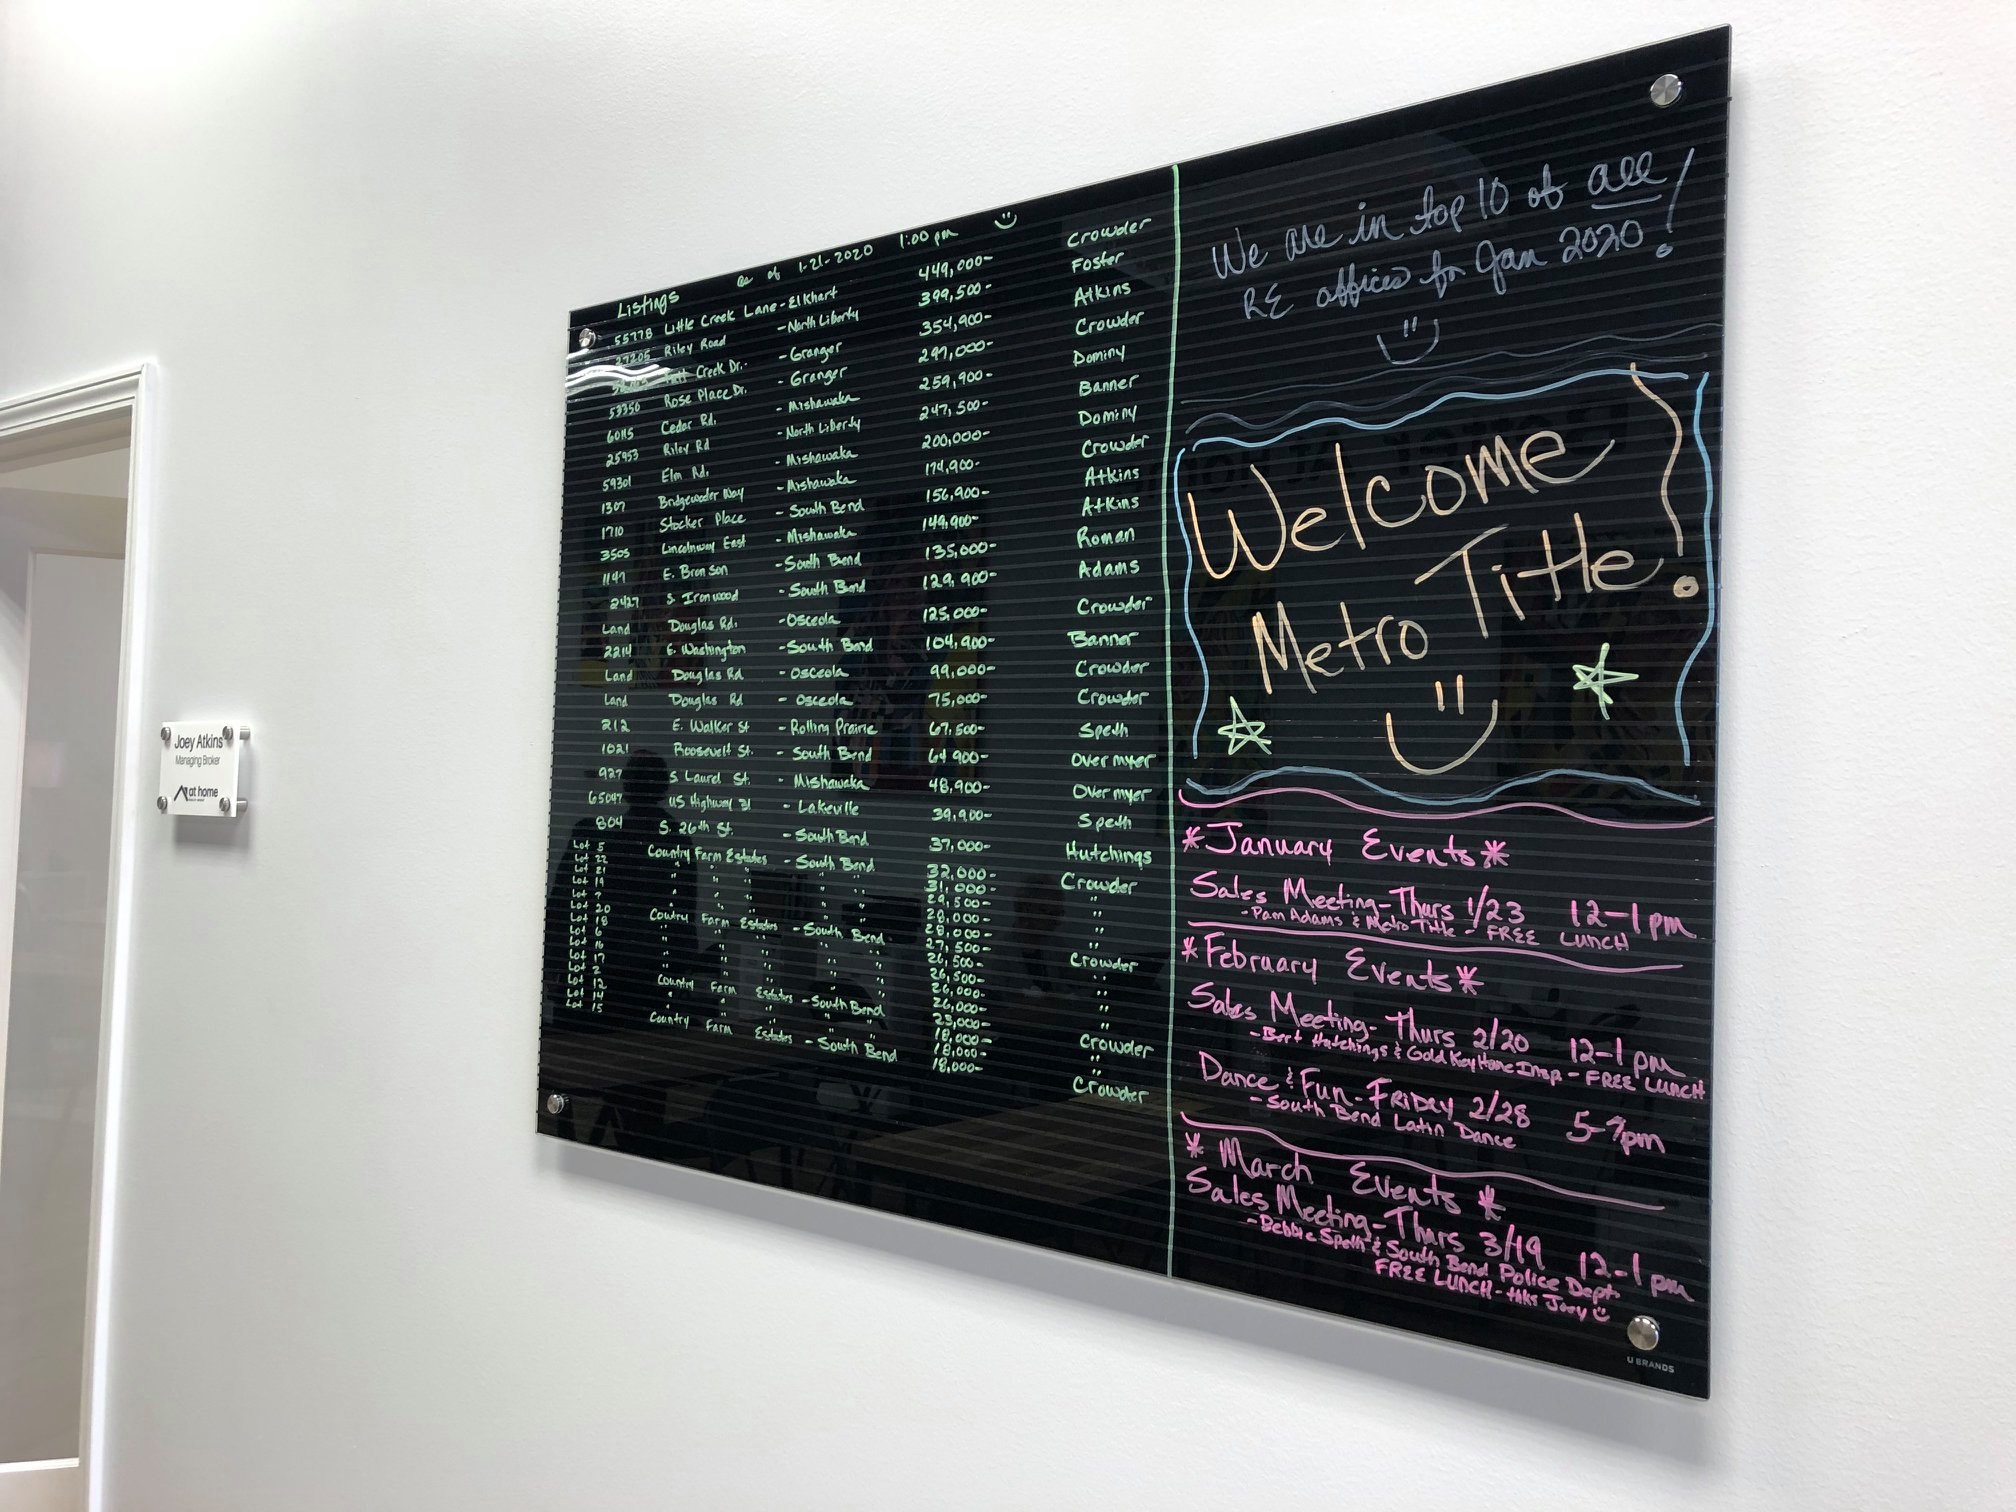 Listings as of 1-21-2020 1:00 pm
55778 Little Creek Lane - Elkhart 449,000- Crowder
27205 Riley Road - North Liberty 399,500- Foster
Creek Dr. - Granger 354,900- Atkins
53350 Rose Place Dr. - Granger 297,000- Crowder
60115 Cedar Rd. - Mishawaka 259,900- Dominy
25953 Riley Rd - North Liberty 247,500- Banner
59301 Elm Rd. - Mishawaka 200,000- Dominy
1307 Bridgewater Way - Mishawaka 174,900- Crowder
1710 Stocker Place - South Bend 156,900- Atkins
3505 Lincolnway East - Mishawaka 149,900- Atkins
1147 E. Bronson - South Bend 135,000- Roman
2427 S. Ironwood - South Bend 129,900- Adams
Land Douglas Rd. - Osceola 125,000- Crowder
2214 E. Washington - South Bend 104,900- Banner
Land Douglas Rd - Osceola 99,000- Crowder
Land Douglas Rd - Osceola 75,000- Crowder
212 E. Walker St - Rolling Prairie 67,500- Speth
1021 Roosevelt St. - South Bend 64,900- Overmyer
927 S Laurel St. - Mishawaka 48,900- Overmyer
65047 US Highway 31 - Lakeville 39,900- Speth
804 S. 26th St. - South Bend 37,000- Hutchings
Lot 5 Country Farm Estates - South Bend 32,000- Crowder
Lot 22 " " " " " 31,000- "
Lot 21 " " " " " 29,500-
Lot 19 " " " " " 28,000- "
Lot 7 28,000- "
Lot 20 Country Farm Estates - South Bend 27,500- Crowder
Lot 18 " " " " " 26,500- "
Lot 6 " " " " " 26,500-
Lot 16 " " " " " 26,000- "
Lot 17 26,000- "
Lot 2 Country Farm Estates - South Bend 23,000- Crowder
Lot 12 " " " " " 18,000- "
Lot 14 18,000- "
Lot 15 Country Farm Estates - South Bend 18,000- Crowder
We are in top 10 of all
RE offices for Jan 2020!
Welcome
Metro Title!
*January Events*
Sales Meeting - Thurs 1/23 12-1 pm
- Pam Adams & Metro Title - FREE LUNCH
*February Events*
Sales Meeting - Thurs 2/20 12-1 pm
- Bert Hutchings & Gold Key Home Insp - FREE LUNCH
Dance & Fun - Friday 2/28 5-7pm
- South Bend Latin Dance
* March Events *
Sales Meeting - Thurs 3/19 12-1 pm
- Debbie Speth & South Bend Police Dept
FREE LUNCH - thks Joey
U BRANDS
Joey Atkins
Managing Broker
at home